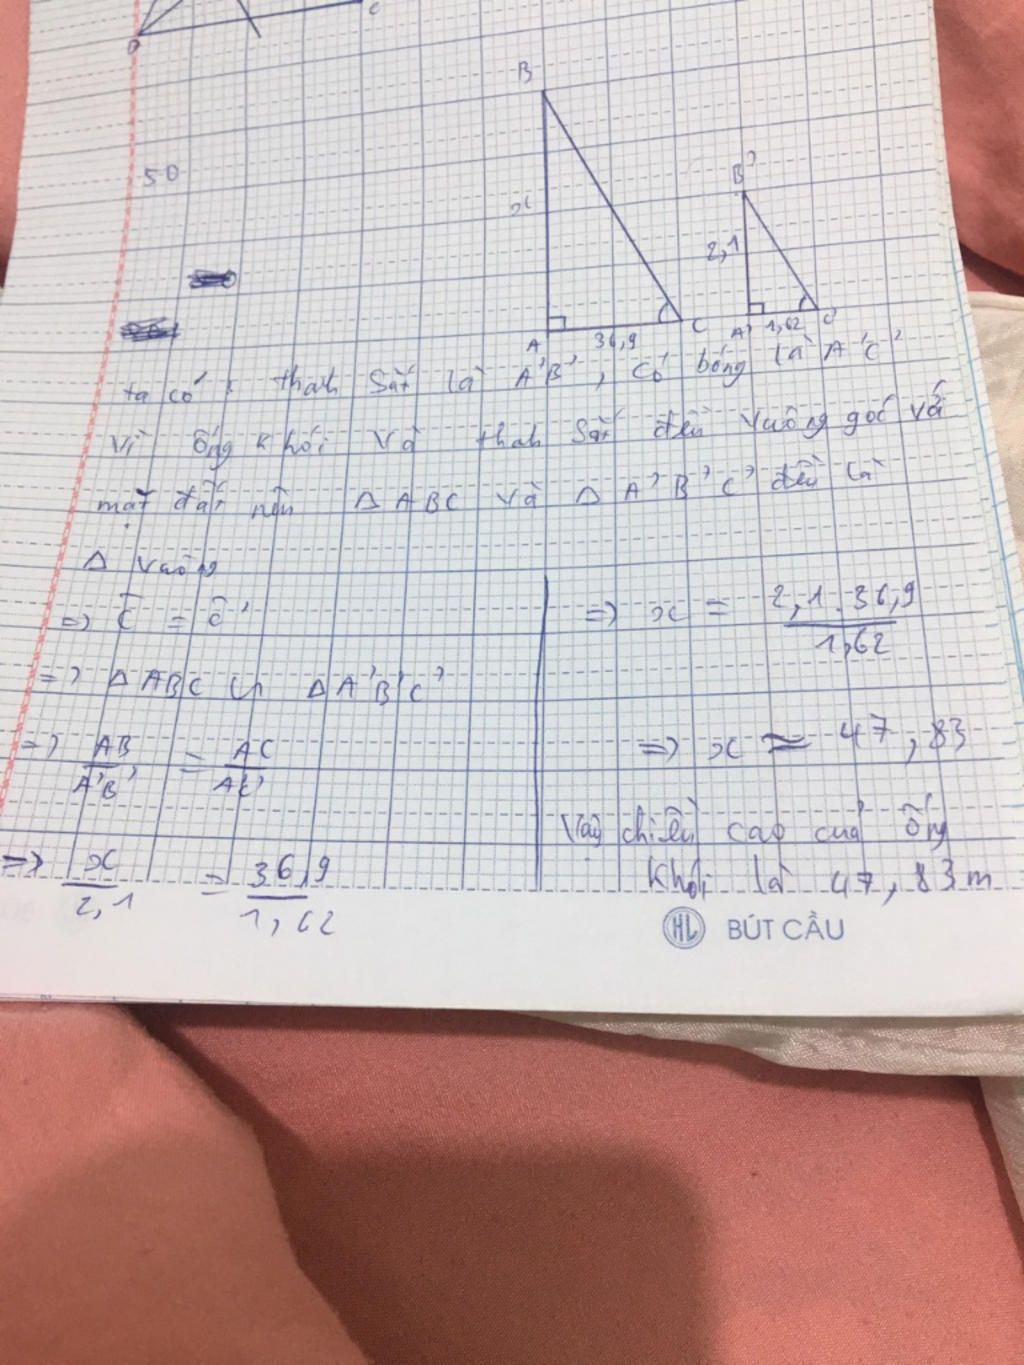 D
C
B
50
B'
x
2,1
A
36,9
C
A'
1,62
C'
ta có : thah Sắt là A'B' , có bóng là A'C'
Vì ống khói và thah Sắt đều vuông góc với
mặt đất nên Δ ABC và Δ A'B'C' đều là
Δ vuông
=> Ĉ = Ĉ'
=> Δ ABC ᔕ Δ A'B'C'
=> AB/A'B' = AC/A'C'
=> x/2,1 = 36,9/1,62
=> x = 2,1.36,9/1,62
=> x ≈ 47,83
Vậy chiều cao của ống
khói là 47,83m
HL BÚT CẦU